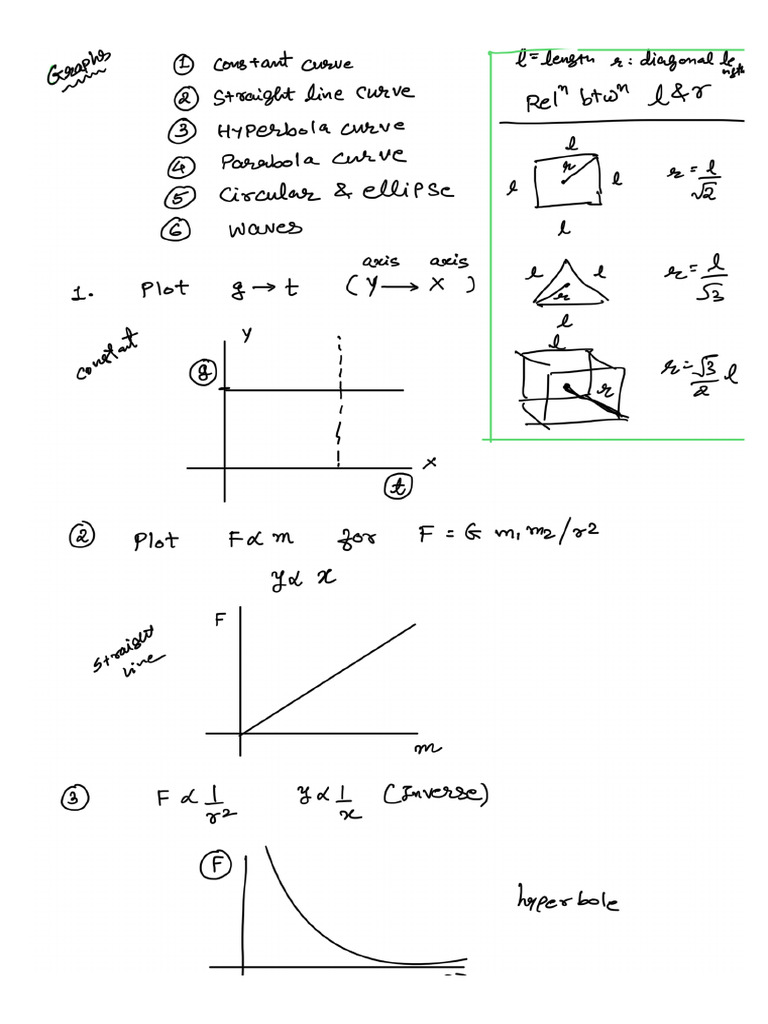 Graphs
① Constant curve
② Straight line curve
③ Hyperbola curve
④ Parabola curve
⑤ Circular & ellipse
⑥ waves
l = length r : diagonal length
Relⁿ btwⁿ l & r
l
r
l
l
r = l/√2
l
l
l
r
r = l/√3
l
l
r
r = √3/2 l
1. Plot g → t (Y axis → X axis)
constant
Y
g
X
t
② Plot F ∝ m for F = G m₁ m₂ / r²
y ∝ x
Straight line
F
m
③ F ∝ 1/r² y ∝ 1/x (Inverse)
F
hyperbole